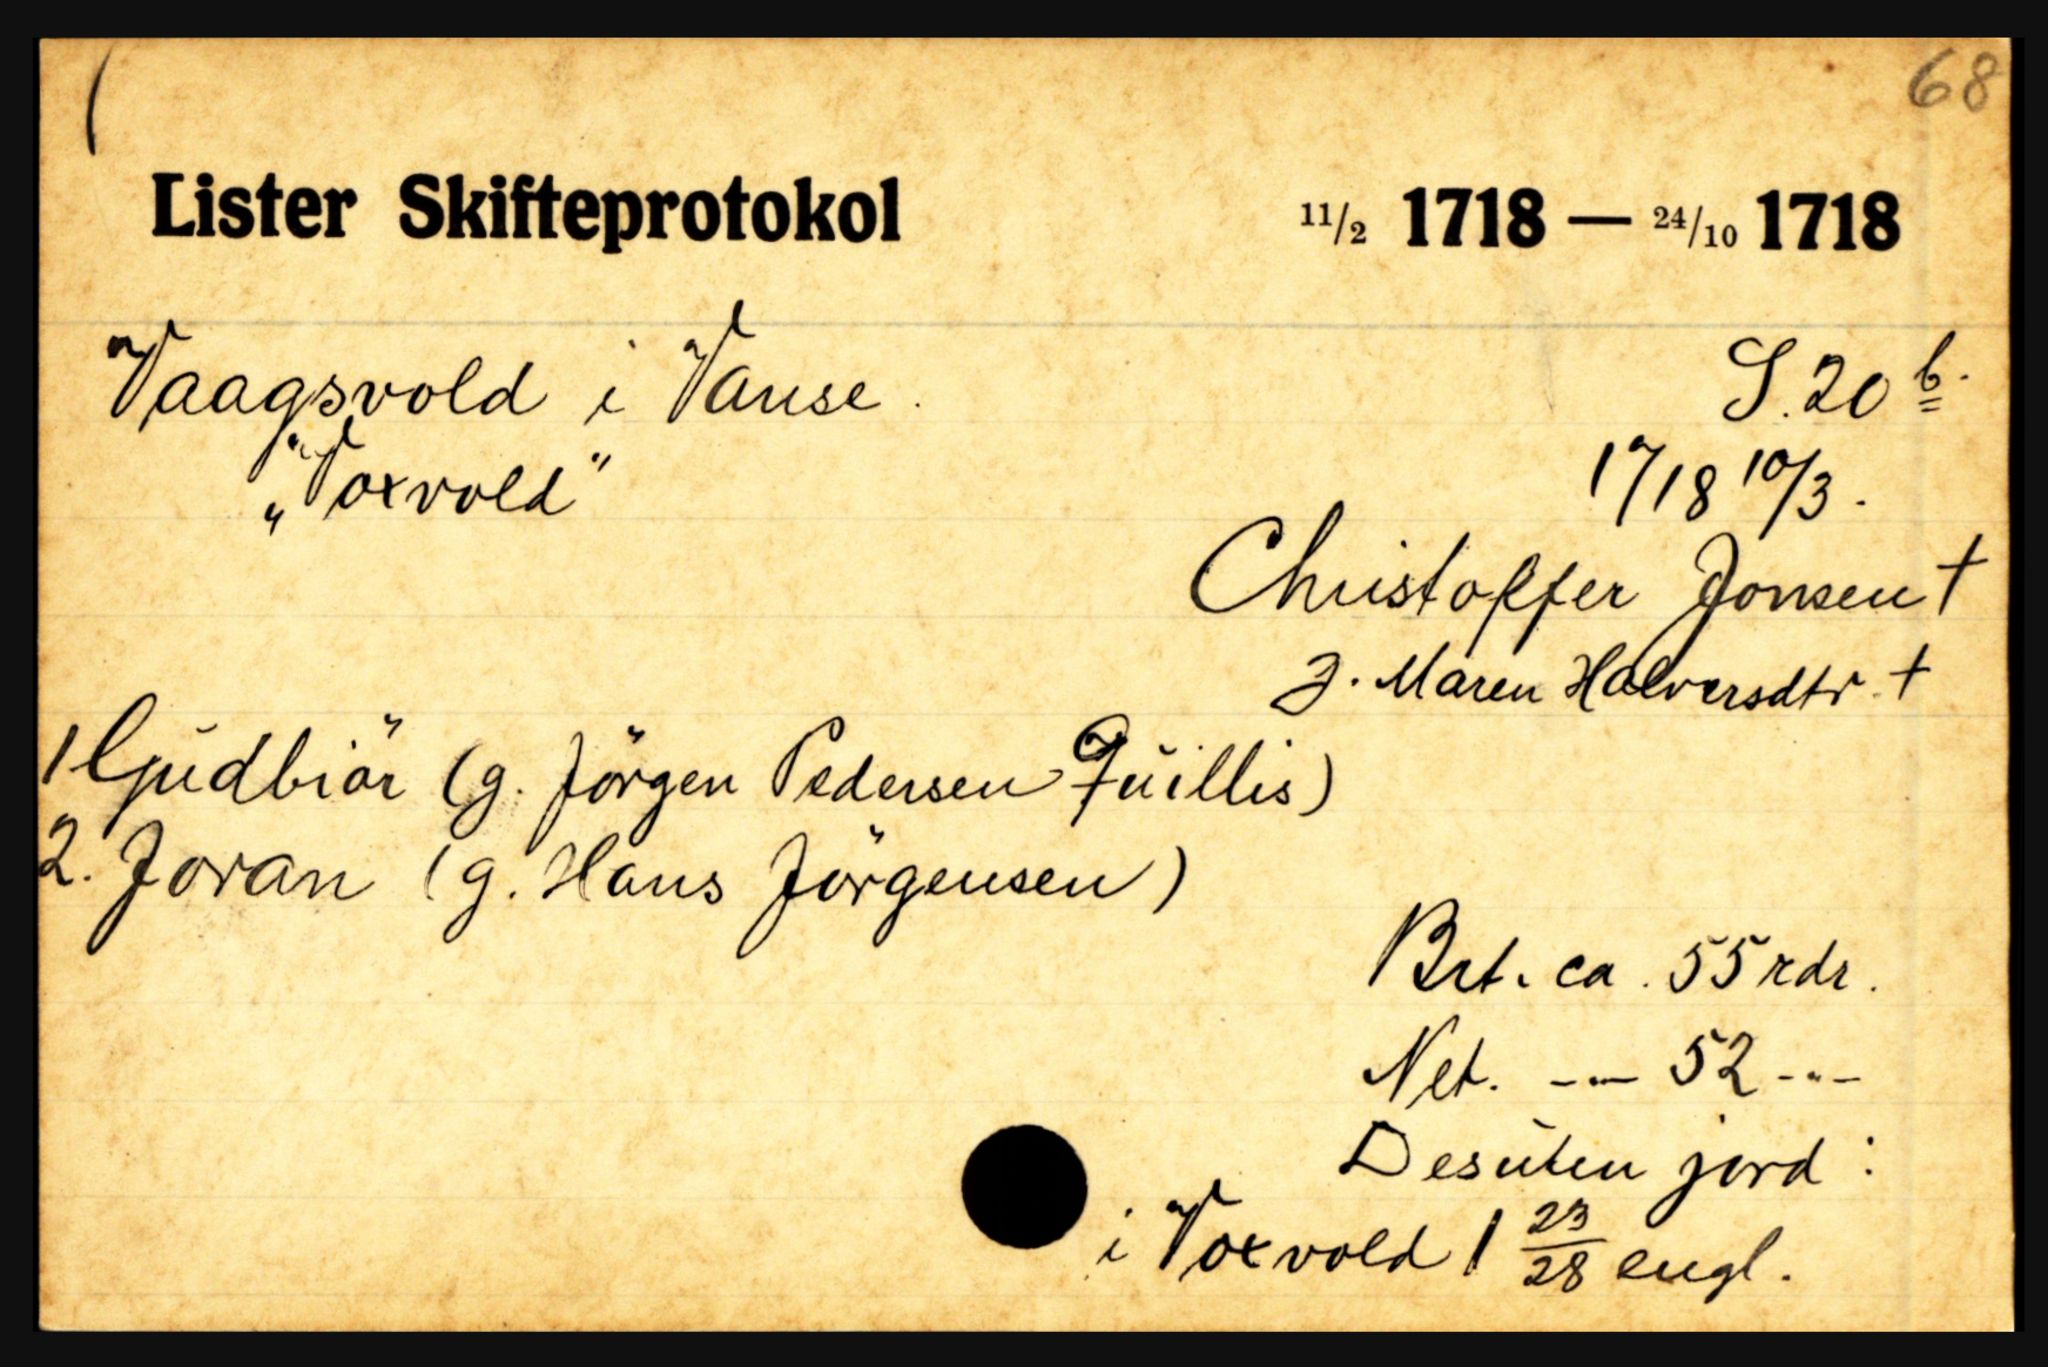 68
Lister Skifteprotokol 11/2 1718 — 24/10 1718
Vaagsvold i Vanse. S. 20 b.
„Voxvold" 1718 10/3.
Christoffer Jonsen †
g. Maren Halversdtr. †
1 Gudbiör (g. Jörgen Pedersen Quillis)
2. Joran (g. Hans Jörgensen)
Brt. ca. 55 rdr.
Net. -"- 52 -"-
Desuten jord:
i Voxvold 1 23/28 engl.